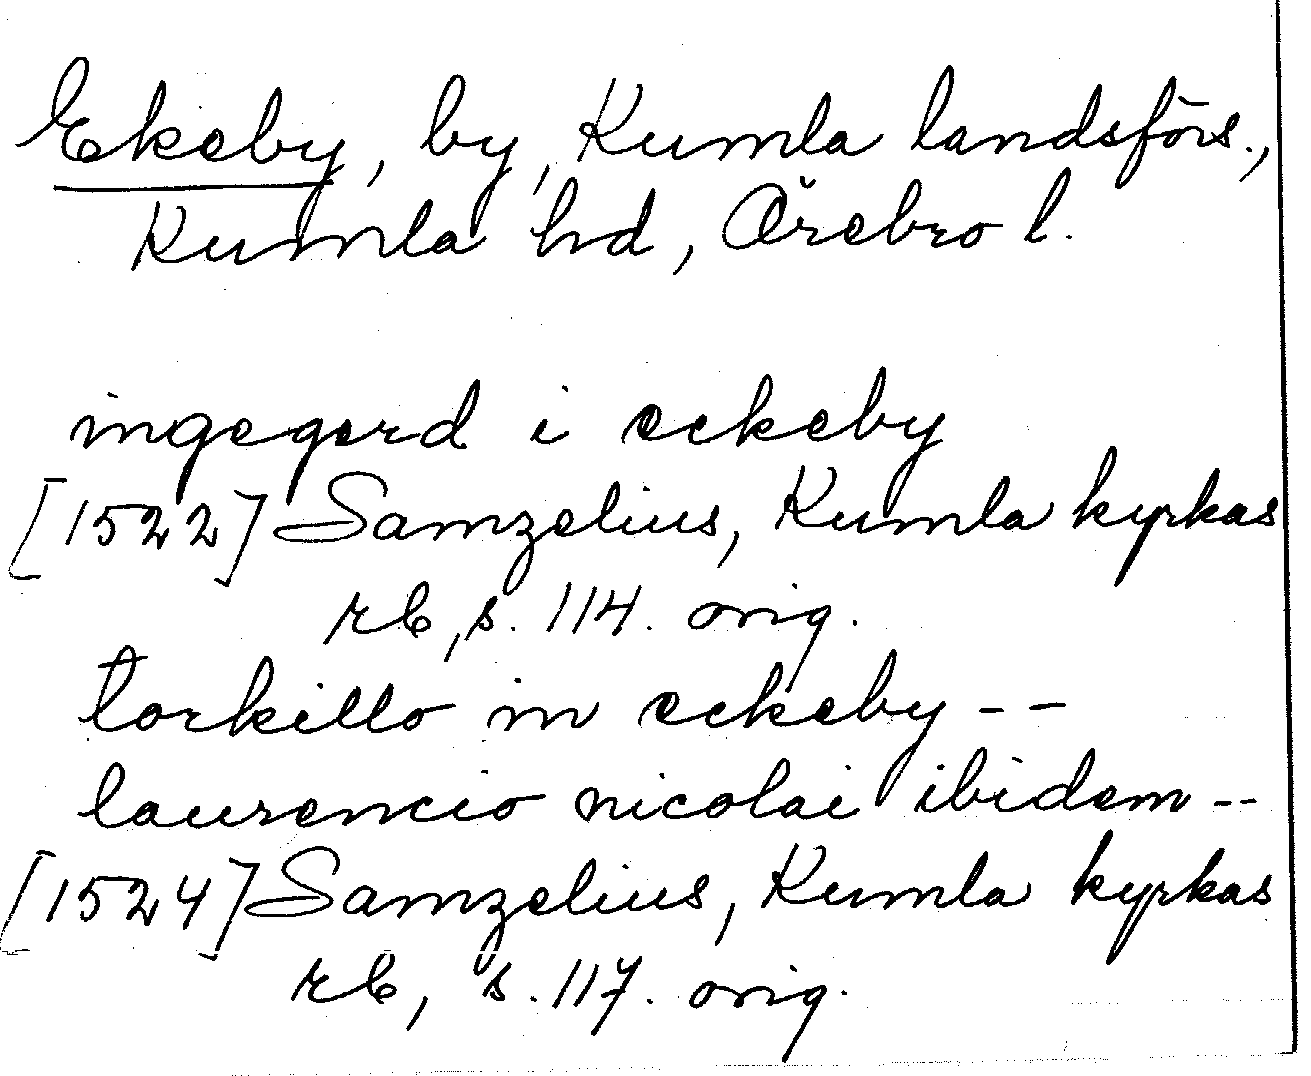 Ekeby, by, Kumla landsförs.,
Kumla hd, Örebro l.
ingegerd i eckeby
[1522] Samzelius, Kumla kyrkas
rb, s. 114. orig.
torkillo in eckeby --
laurencio nicolai ibidem --
[1524] Samzelius, Kumla kyrkas
rb, s. 117. orig.